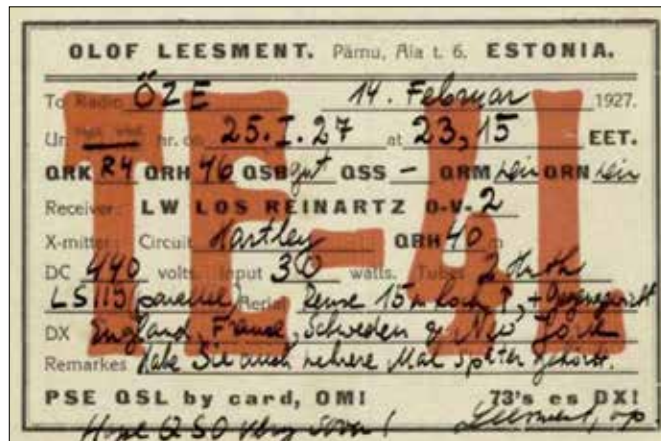 OLOF LEESMENT. Pärnu, Aia t. 6. ESTONIA.
To Radio ÖZE 14. Februar 1927.
Ur. hr. on 25.I.27 at 23,15 EET.
QRK R4 QRH 46 QSB gut QSS — QRM kein QRN kein
Receiver: LW LOS REINARTZ O-V-2
X-mitter: Circuit Hartley QRH 40 m
DC 440 volts. Input 30 watts. Tubes 2
LS115 (parallel) Aerial Reuse 15 m hoch ↑, + Gegengewicht
DX England, France, Schweden & New York
Remarks Habe Sie auch mehrere Mal später gehört.
PSE QSL by card, OM! 73's es DX!
Hope QSO very soon! Leesment, op.
TE-AL